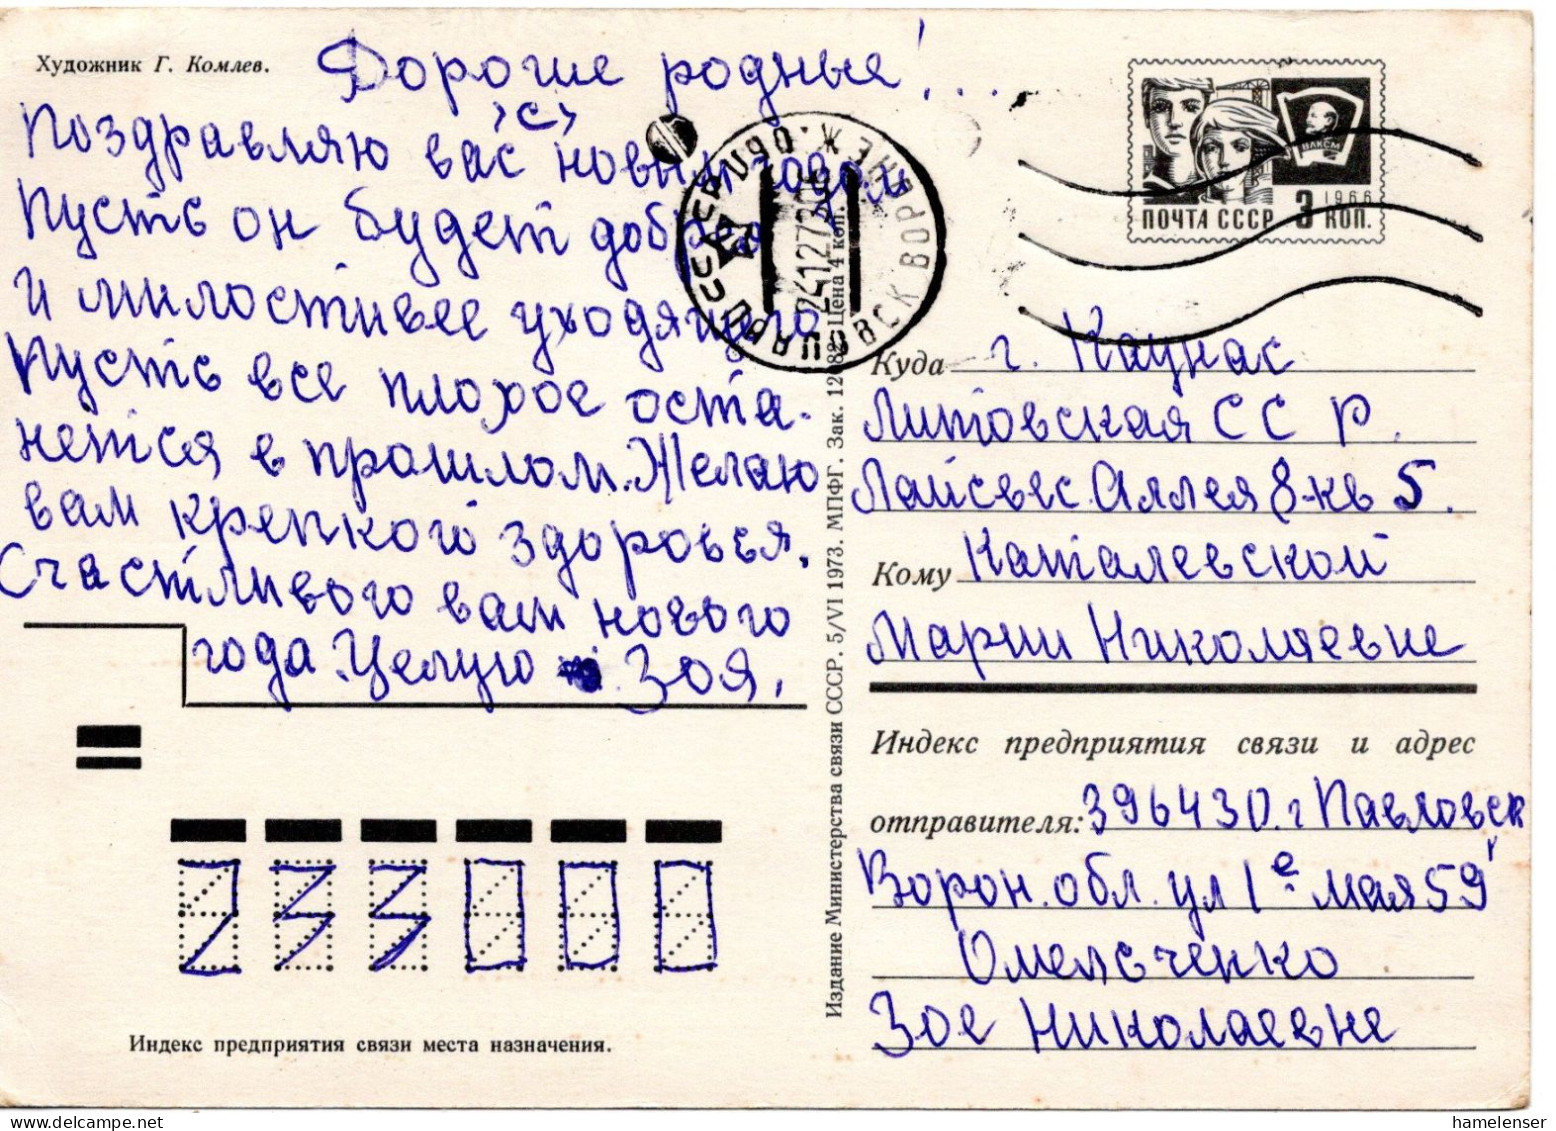 Художник Г. Комлев.
Дорогие родные!...
Поздравляю вас с новым годом
Пусть он будет добрее
и милостивее уходящего
Пусть все плохое оста-
нется в прошлом. Желаю
вам крепкого здоровья.
Счастливого вам нового
года. Целую Зоя.
233000
Индекс предприятия связи места назначения.
Издание Министерства связи СССР. 5/VI 1973. МПФГ. Зак. Цена 4 коп.
ПОЧТА СССР 3 КОП.
1966
ВЛКСМ
Куда г. Каунас
Литовская ССР.
Лайсвес Аллея 8-кв 5.
Кому Каталевской
Марии Николаевне
Индекс предприятия связи и адрес
отправителя: 396430. г Павловск
Ворон. обл. ул 1е мая 59
Омельченко
Зое Николаевне
hamelenser